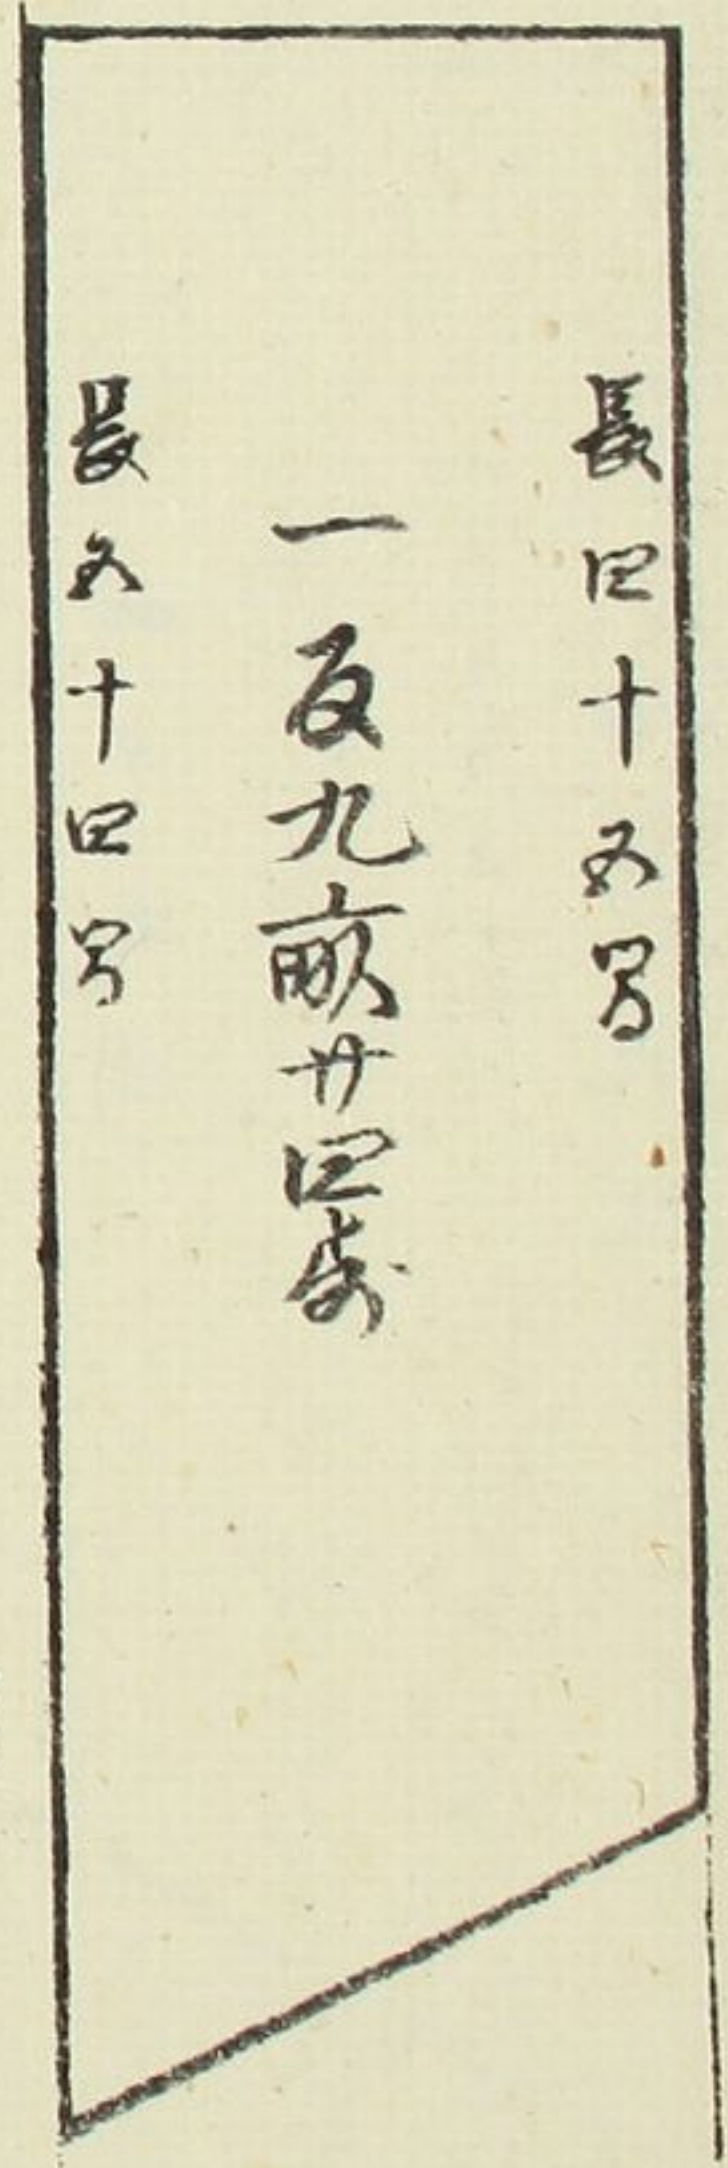 長四十五間
一反九畝廿四歩
長五十四間